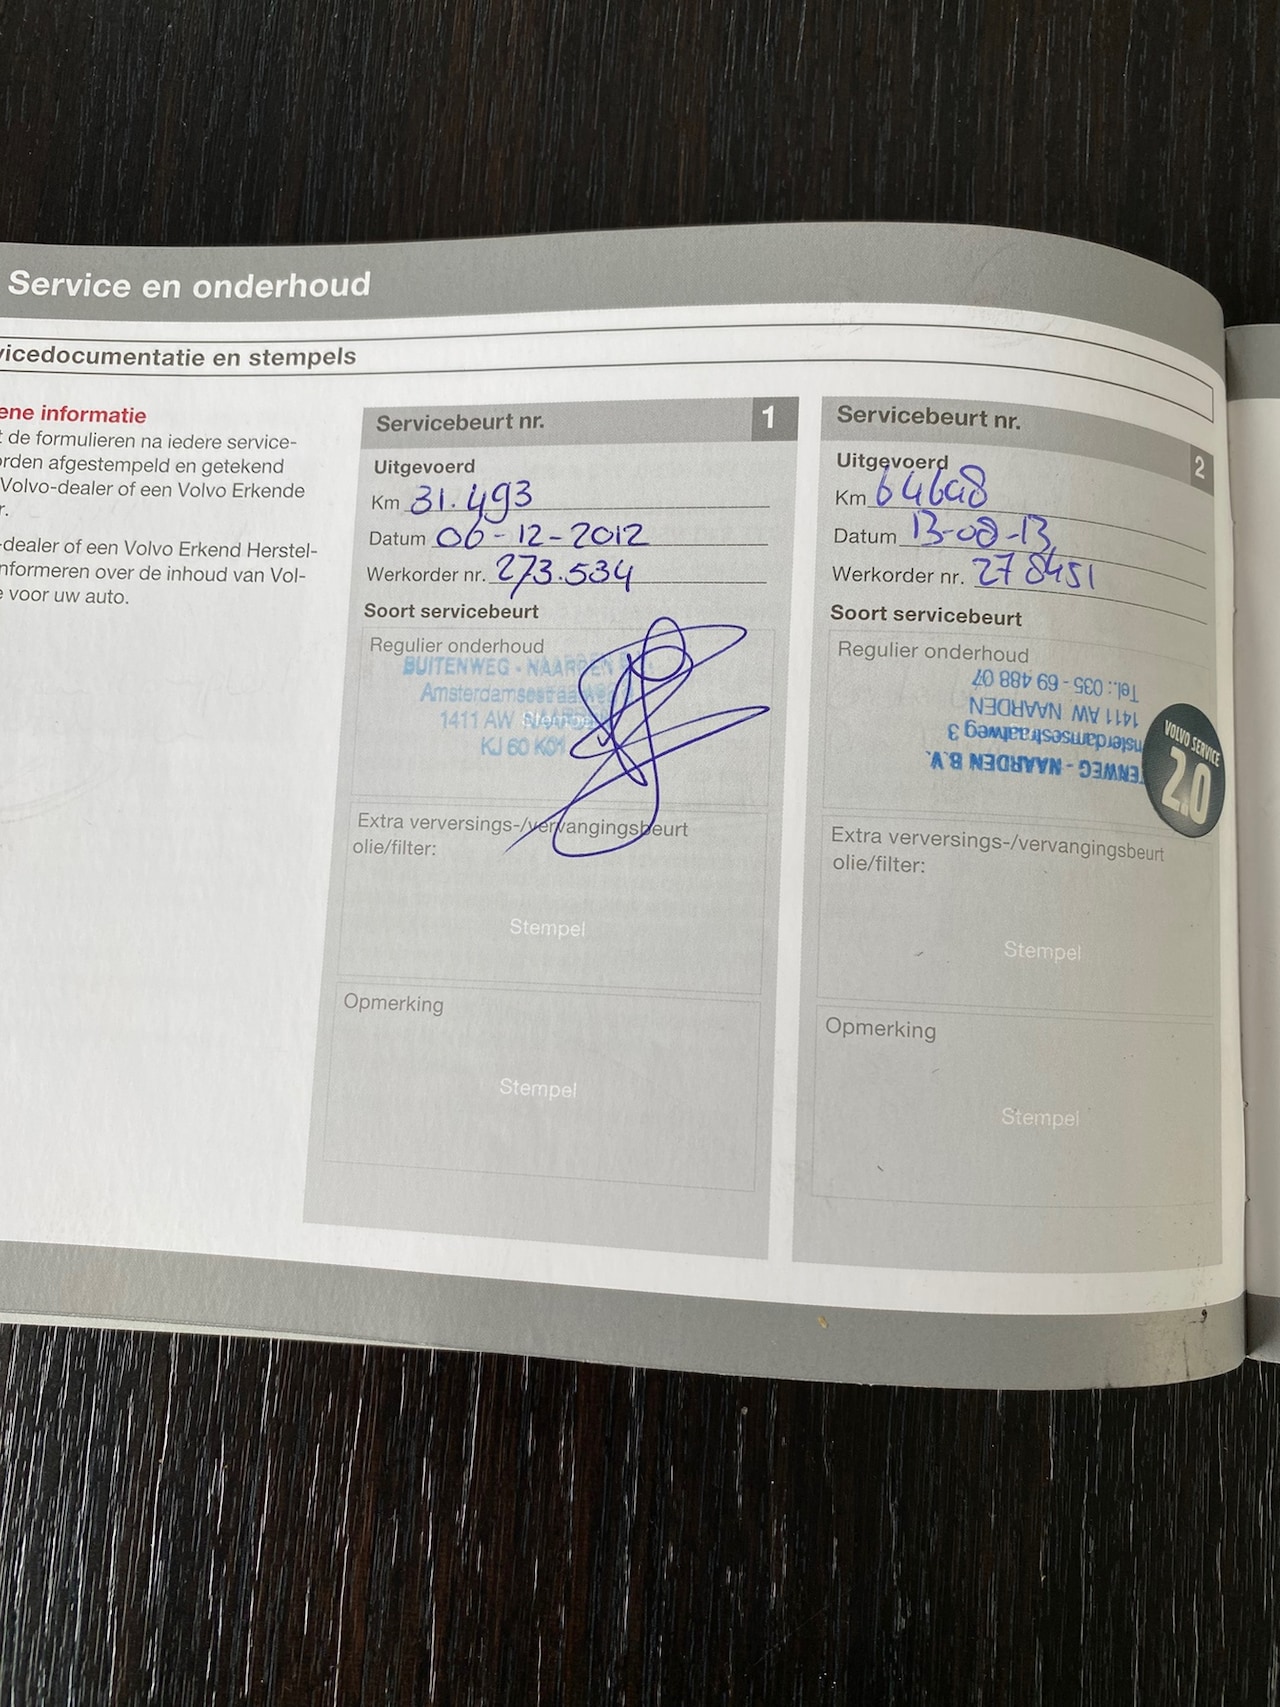 Service en onderhoud
vicedocumentatie en stempels
ene informatie
t de formulieren na iedere service-
orden afgestempeld en getekend
Volvo-dealer of een Volvo Erkende
r.
-dealer of een Volvo Erkend Herstel-
nformeren over de inhoud van Vol-
e voor uw auto.
Servicebeurt nr. 1
Uitgevoerd
Km 31.493
Datum 06-12-2012
Werkorder nr. 273.534
Soort servicebeurt
Regulier onderhoud
BUITENWEG - NAARDEN
Amsterdamsestraatweg
1411 AW NAARDEN
KJ 60 K01
Extra verversings-/vervangingsbeurt
olie/filter:
Stempel
Opmerking
Stempel
Servicebeurt nr. 2
Uitgevoerd
Km
Datum 13-08-13
Werkorder nr. 278451
Soort servicebeurt
Regulier onderhoud
ENWEG - NAARDEN B.V.
nsterdamsestraatweg 3
1411 AW NAARDEN
Tel.: 035 - 69 488 07
VOLVO SERVICE
2.0
Extra verversings-/vervangingsbeurt
olie/filter:
Stempel
Opmerking
Stempel